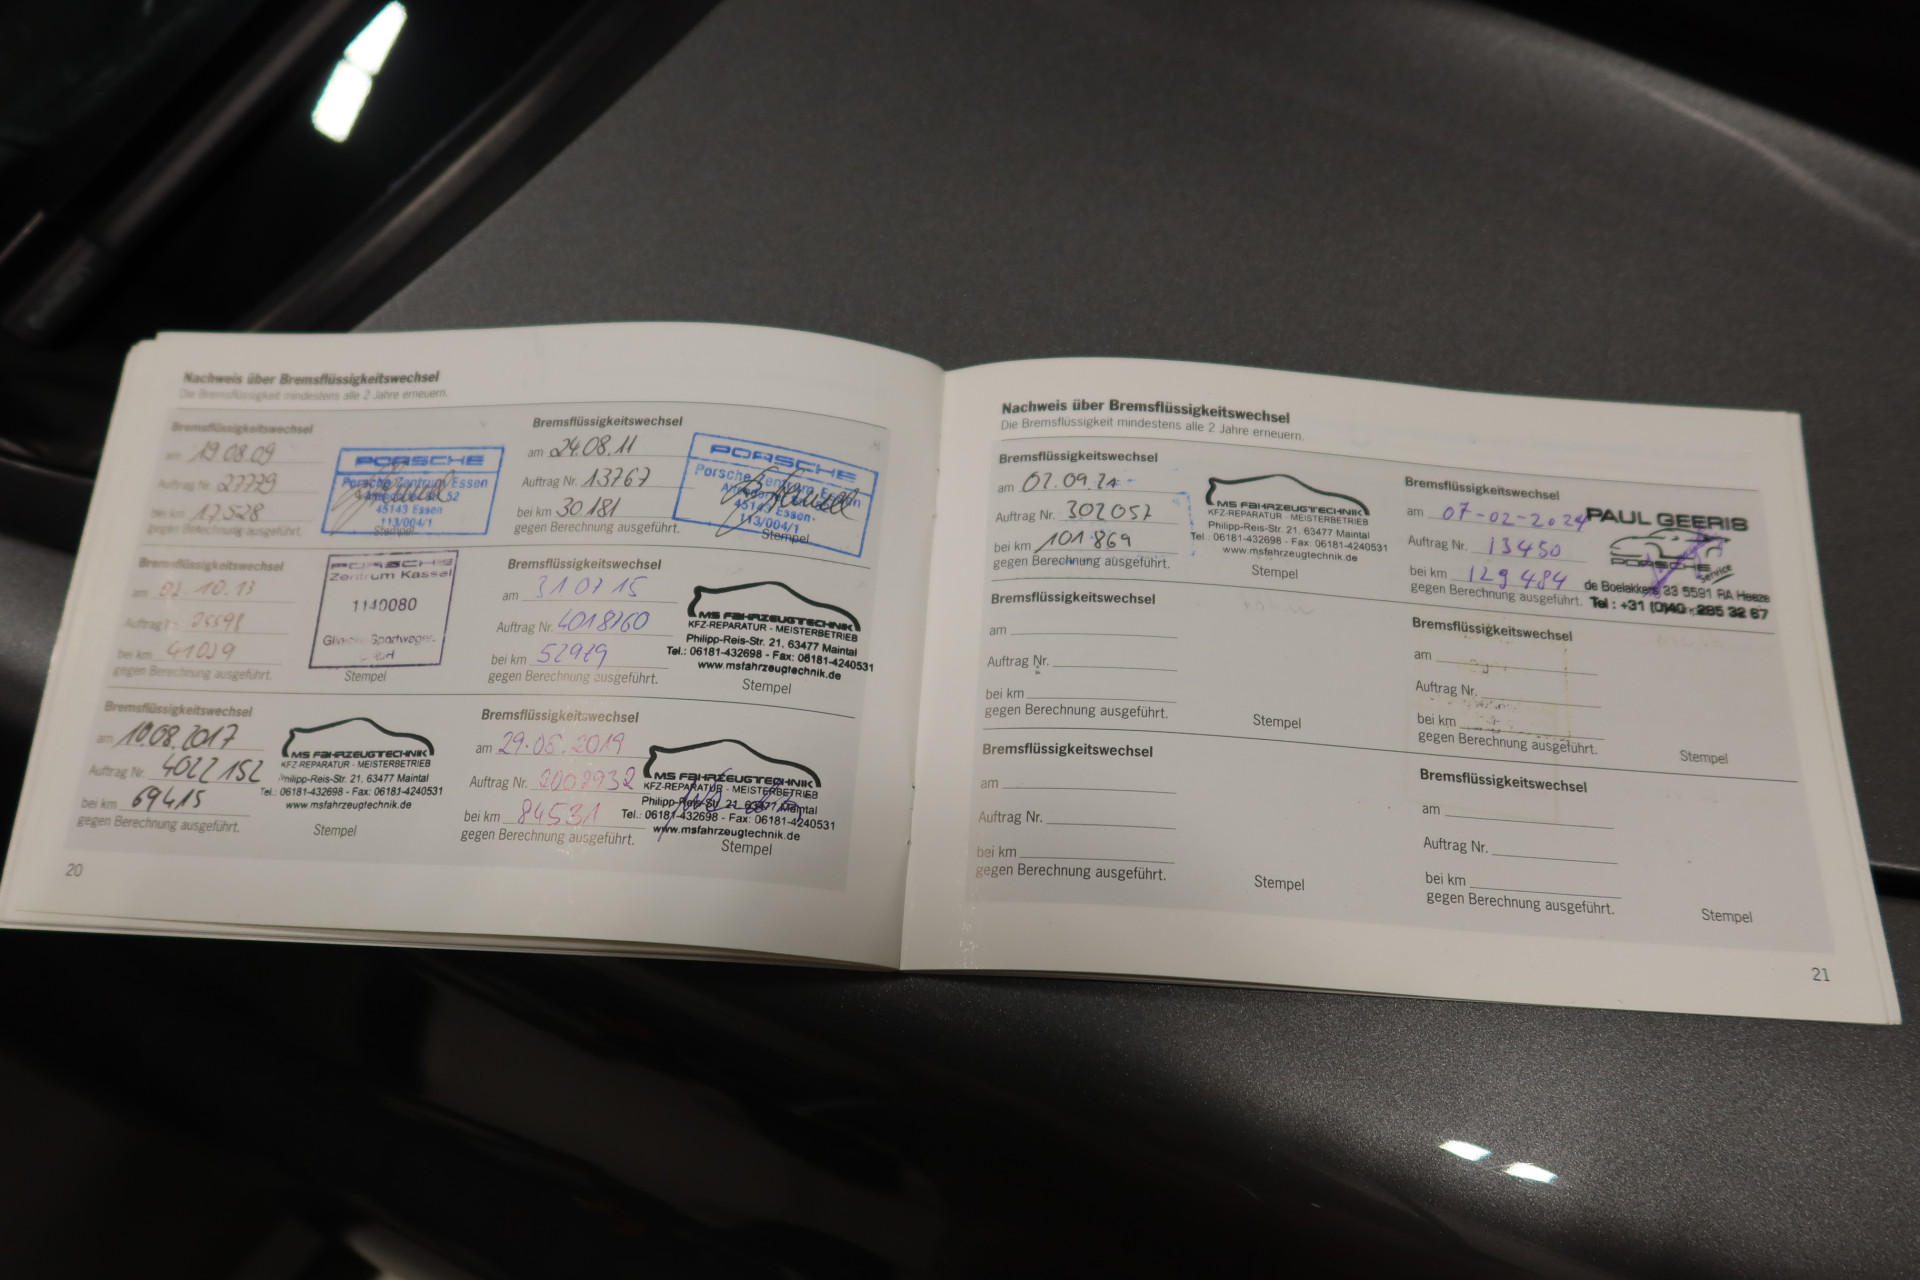 Nachweis über Bremsflüssigkeitswechsel
Die Bremsflüssigkeit mindestens alle 2 Jahre erneuern.
Bremsflüssigkeitswechsel
am 19.08.09
Auftrag Nr. 27779
bei km 17.528
gegen Berechnung ausgeführt.
PORSCHE
Porsche Zentrum Essen
45143 Essen
113/004/1
Stempel
Bremsflüssigkeitswechsel
am 24.08.11
Auftrag Nr. 13767
bei km 30181
gegen Berechnung ausgeführt.
PORSCHE
Porsche Zentrum Essen
45143 Essen
113/004/1
Stempel
Bremsflüssigkeitswechsel
am 02.10.13
Auftrag Nr.
bei km 41029
gegen Berechnung ausgeführt.
PORSCHE
Zentrum Kassel
1140080
Stempel
Bremsflüssigkeitswechsel
am 31.07.15
Auftrag Nr. 4018760
bei km 52919
gegen Berechnung ausgeführt.
MS FAHRZEUGTECHNIK
KFZ-REPARATUR - MEISTERBETRIEB
Philipp-Reis-Str. 21, 63477 Maintal
Tel.: 06181-432698 - Fax: 06181-4240531
www.msfahrzeugtechnik.de
Stempel
Bremsflüssigkeitswechsel
am 10.08.2017
Auftrag Nr. 4022152
bei km 69415
gegen Berechnung ausgeführt.
MS FAHRZEUGTECHNIK
KFZ-REPARATUR - MEISTERBETRIEB
Philipp-Reis-Str. 21, 63477 Maintal
Tel.: 06181-432698 - Fax: 06181-4240531
www.msfahrzeugtechnik.de
Stempel
Bremsflüssigkeitswechsel
am 29.06.2019
Auftrag Nr. 2002932
bei km 84531
gegen Berechnung ausgeführt.
MS FAHRZEUGTECHNIK
KFZ-REPARATUR - MEISTERBETRIEB
Philipp-Reis-Str. 21, 63477 Maintal
Tel.: 06181-432698 - Fax: 06181-4240531
www.msfahrzeugtechnik.de
Stempel
20
Nachweis über Bremsflüssigkeitswechsel
Die Bremsflüssigkeit mindestens alle 2 Jahre erneuern.
Bremsflüssigkeitswechsel
am 02.09.21
Auftrag Nr. 302057
bei km 101.869
gegen Berechnung ausgeführt.
MS FAHRZEUGTECHNIK
KFZ-REPARATUR - MEISTERBETRIEB
Philipp-Reis-Str. 21, 63477 Maintal
Tel.: 06181-432698 - Fax: 06181-4240531
www.msfahrzeugtechnik.de
Stempel
Bremsflüssigkeitswechsel
am 07-02-2024
Auftrag Nr. 13450
bei km 129484
gegen Berechnung ausgeführt.
PAUL GEERIS
PORSCHE
Service
de Boelakkers 33 5591 RA Heeze
Tel : +31 (0)40 - 285 32 67
Bremsflüssigkeitswechsel
am
Auftrag Nr.
bei km
gegen Berechnung ausgeführt.
Stempel
Bremsflüssigkeitswechsel
am
Auftrag Nr.
bei km
gegen Berechnung ausgeführt.
Stempel
Bremsflüssigkeitswechsel
am
Auftrag Nr.
bei km
gegen Berechnung ausgeführt.
Stempel
Bremsflüssigkeitswechsel
am
Auftrag Nr.
bei km
gegen Berechnung ausgeführt.
Stempel
21